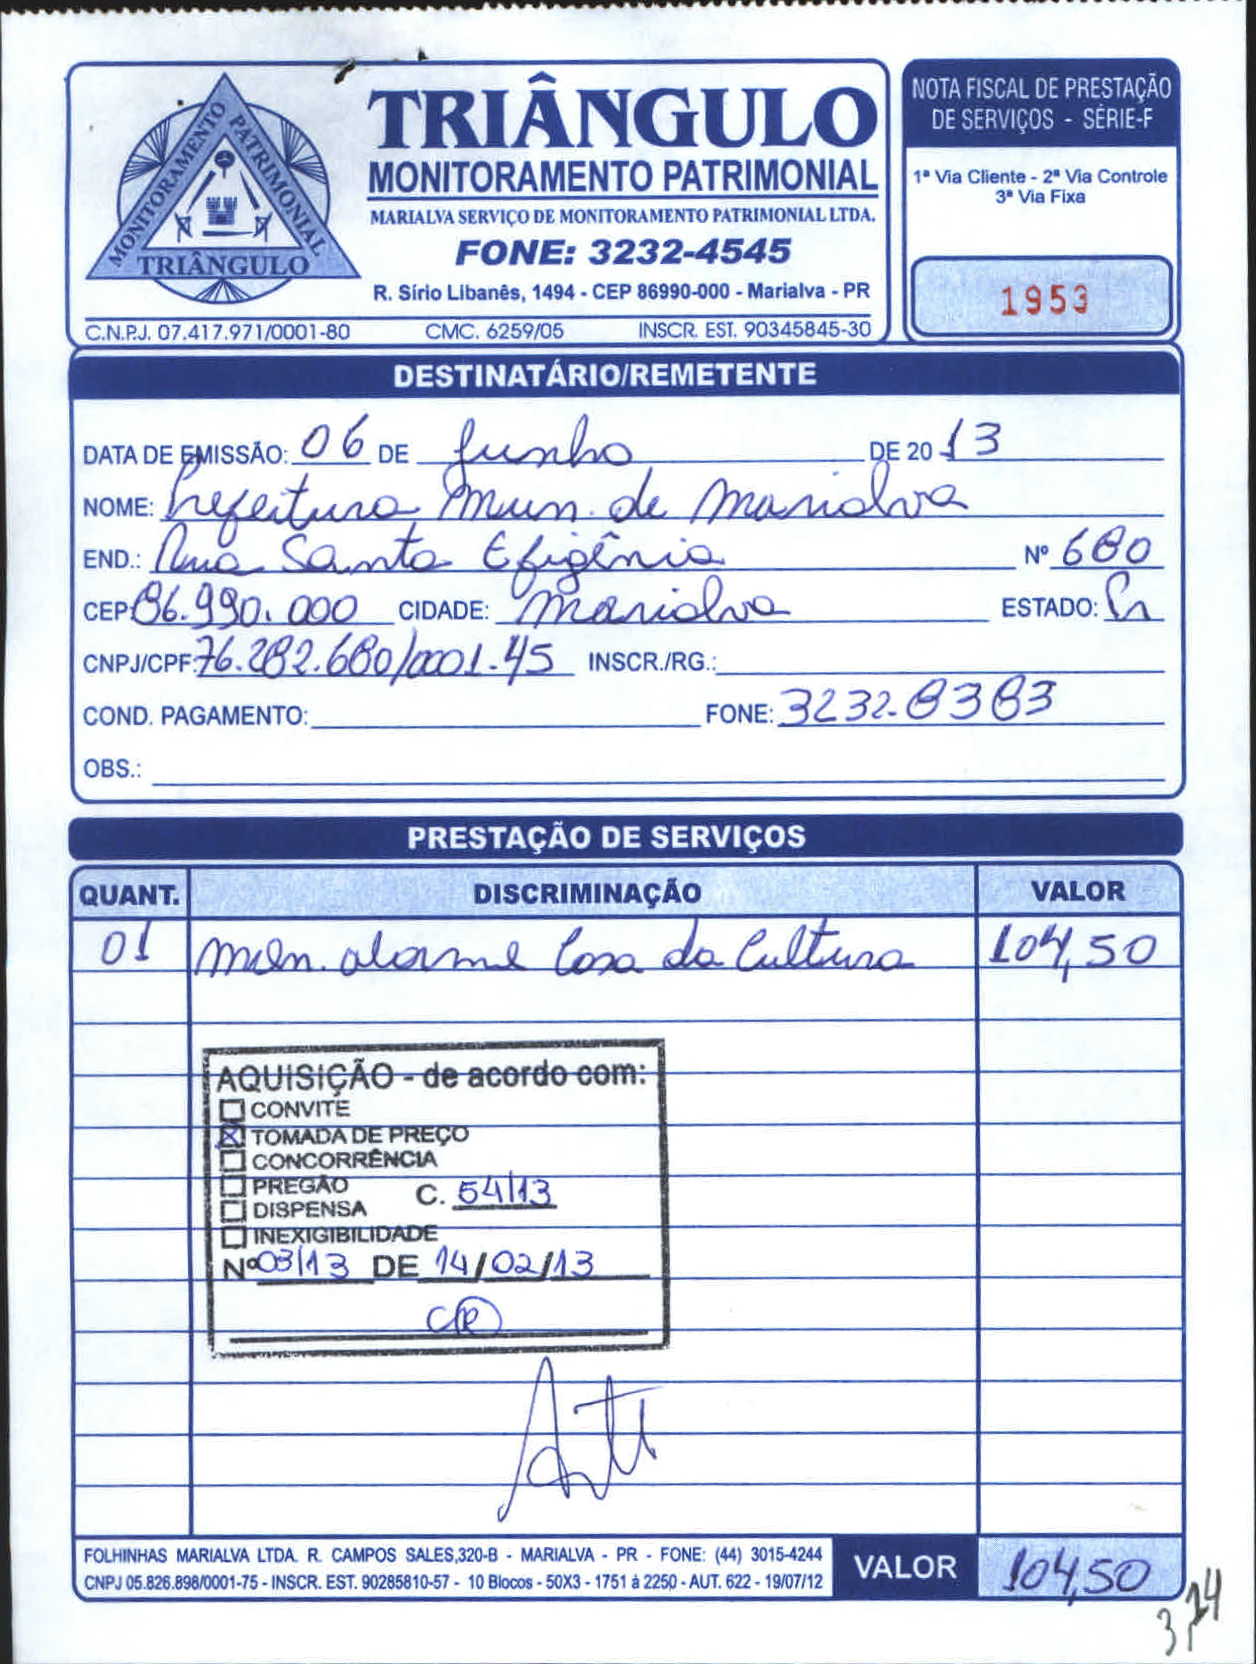 TRIÂNGULO
MONITORAMENTO PATRIMONIAL
MARIALVA SERVIÇO DE MONITORAMENTO PATRIMONIAL LTDA.
FONE: 3232-4545
R. Sírio Libanês, 1494 - CEP 86990-000 - Marialva - PR
C.N.P.J. 07.417.971/0001-80 CMC. 6259/05 INSCR. EST. 90345845-30
MONITORAMENTO PATRIMONIAL
TRIÂNGULO
NOTA FISCAL DE PRESTAÇÃO
DE SERVIÇOS - SÉRIE-F
1ª Via Cliente - 2ª Via Controle
3ª Via Fixa
1953
DESTINATÁRIO/REMETENTE
DATA DE EMISSÃO: 06 DE Junho DE 20 13
NOME: Prefeitura Mun. de Marialva
END.: Rua Santa Efigênia Nº 680
CEP: 86.990.000 CIDADE: Marialva ESTADO: Pr
CNPJ/CPF: 76.282.680/0001-45 INSCR./RG.:
COND. PAGAMENTO: FONE: 3232-8383
OBS.:
PRESTAÇÃO DE SERVIÇOS
QUANT. DISCRIMINAÇÃO VALOR
01 Men. alarme Casa da Cultura 104,50
AQUISIÇÃO - de acordo com:
CONVITE
TOMADA DE PREÇO
CONCORRÊNCIA
PREGÃO C. 54/13
DISPENSA
INEXIGIBILIDADE
Nº 03/13 DE 14/02/13
FOLHINHAS MARIALVA LTDA. R. CAMPOS SALES,320-B - MARIALVA - PR - FONE: (44) 3015-4244
CNPJ 05.826.898/0001-75 - INSCR. EST. 90285810-57 - 10 Blocos - 50X3 - 1751 à 2250 - AUT. 622 - 19/07/12
VALOR 104,50